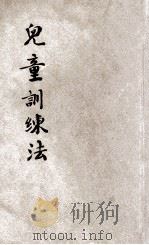 兒童訓練法
mtoou.info